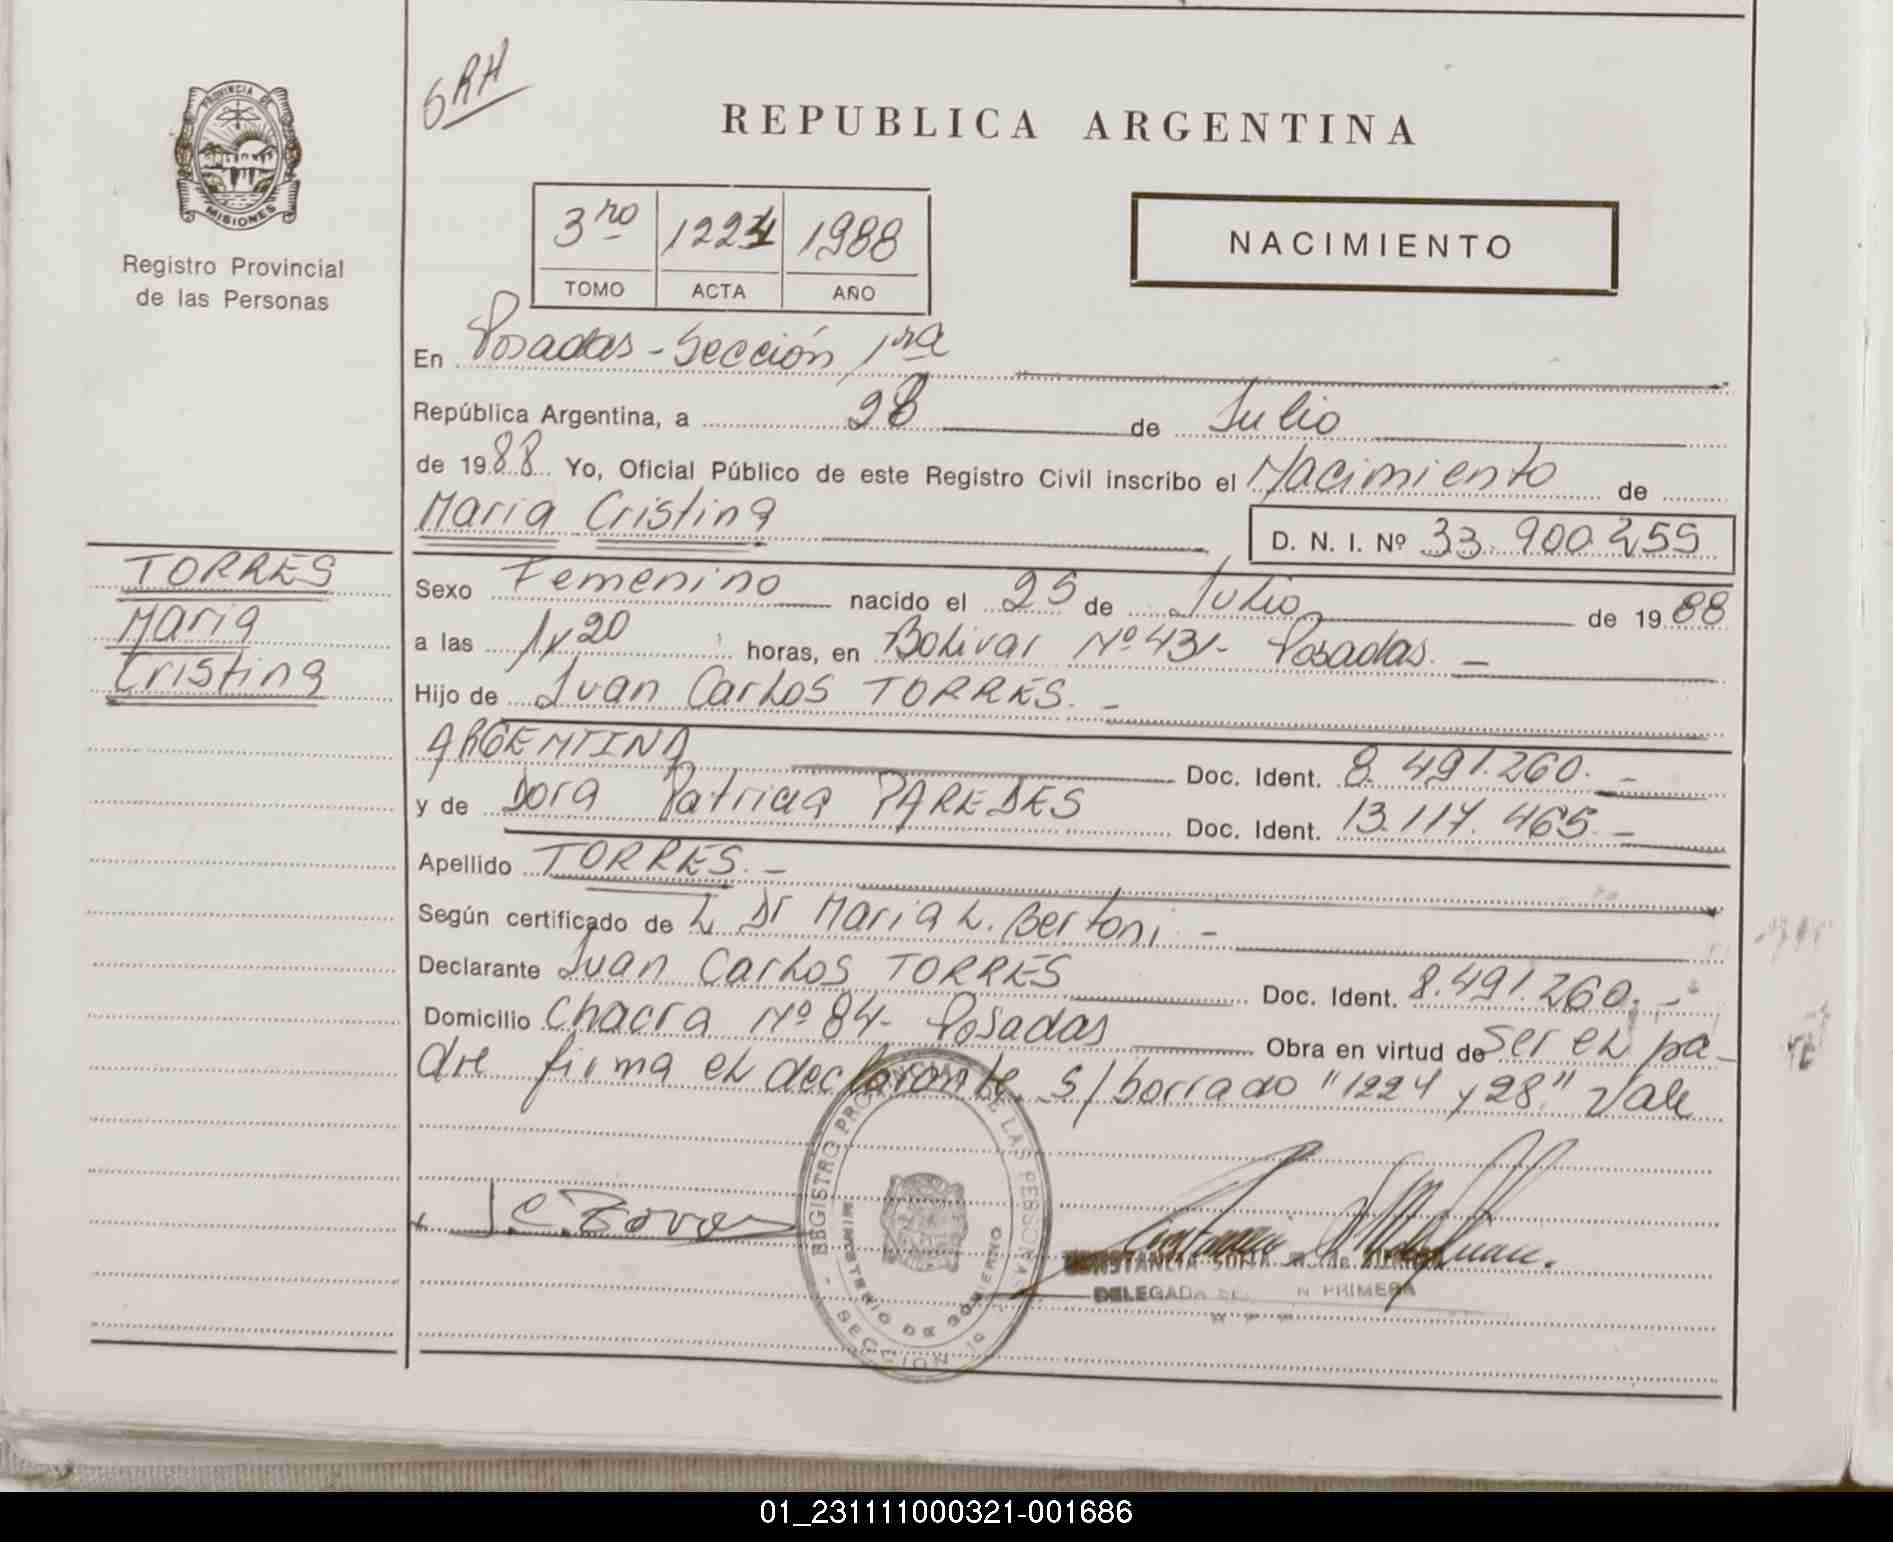 PROVINCIA DE
MISIONES
Registro Provincial
de las Personas
TORRES
Maria
Cristina
SRH
REPUBLICA ARGENTINA
3ro 1224 1988
TOMO ACTA AÑO
NACIMIENTO
En Posadas - Sección 1ra
República Argentina, a 28 de Julio
de 1988 Yo, Oficial Público de este Registro Civil inscribo el Nacimiento de
Maria Cristina D. N. I. Nº 33.900.255
Sexo Femenino nacido el 25 de Julio de 1988
a las 1y20 horas, en Bolivar Nº 431- Posadas. -
Hijo de Juan Carlos TORRES. -
ARGENTINA Doc. Ident. 8.491.260. -
y de Dora Patricia PAREDES Doc. Ident. 13.117.465. -
Apellido TORRES. -
Según certificado de L Dr Maria L. Bertoni -
Declarante Juan Carlos TORRES Doc. Ident. 8.491.260. -
Domicilio Chacra Nº 84- Posadas Obra en virtud de ser el pa-
dre firma el declarante. s/borrado "1224 y 28" Vale
J.C. Torres
REGISTRO PROVINCIAL DE LAS PERSONAS
MINISTERIO DE GOBIERNO
SECCION 1º
CONSTANCIA
DELEGADA PRIMERA
01_231111000321-001686